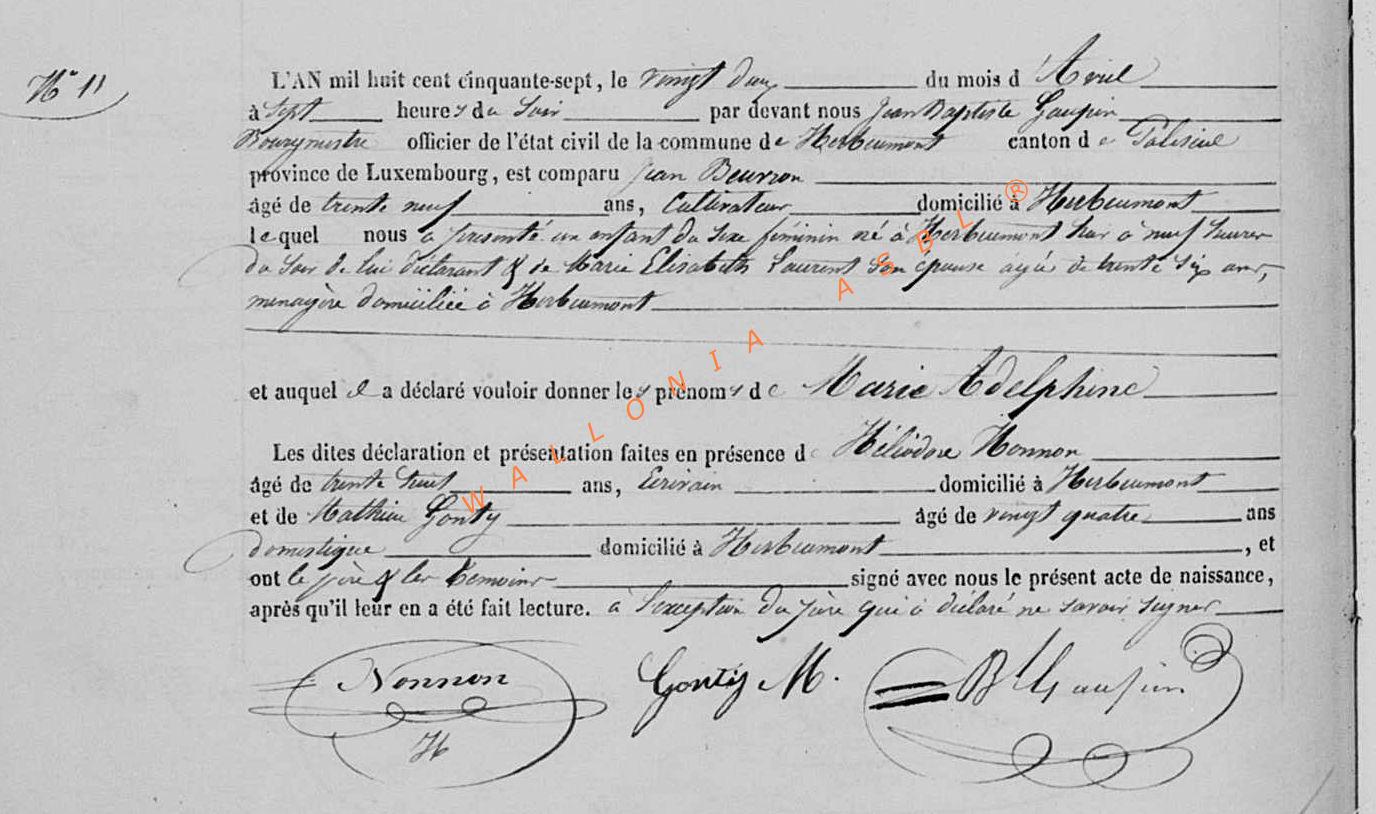 N° 11
L'AN mil huit cent cinquante-sept, le vingt deux du mois d'Avril
à sept heures du soir par devant nous Jean Baptiste Gaupin
Bourgmestre officier de l'état civil de la commune de Herbeumont canton de Paliseul
province de Luxembourg, est comparu Jean Beuvron
âgé de trente neuf ans, Cultivateur domicilié à Herbeumont
lequel nous a présenté un enfant du sexe féminin né à Herbeumont hier à neuf heures
du soir de lui déclarant & de Marie Elisabeth Laurent son épouse agée de trente six ans,
menagère domiciliée à Herbeumont
et auquel il a déclaré vouloir donner les prénoms de Marie Adelphine
Les dites déclaration et présentation faites en présence de Héliodore Nonnon
âgé de trente huit ans, Ecrivain domicilié à Herbeumont
et de Mathieu Gonty âgé de vingt quatre ans
domestique domicilié à Herbeumont, et
ont le père & les temoins signé avec nous le présent acte de naissance,
après qu'il leur en a été fait lecture. à l'exception du père qui a déclaré ne savoir signer
Nonnon Gontÿ M. JB Gaupin
H
WALLONIA ASBL ®